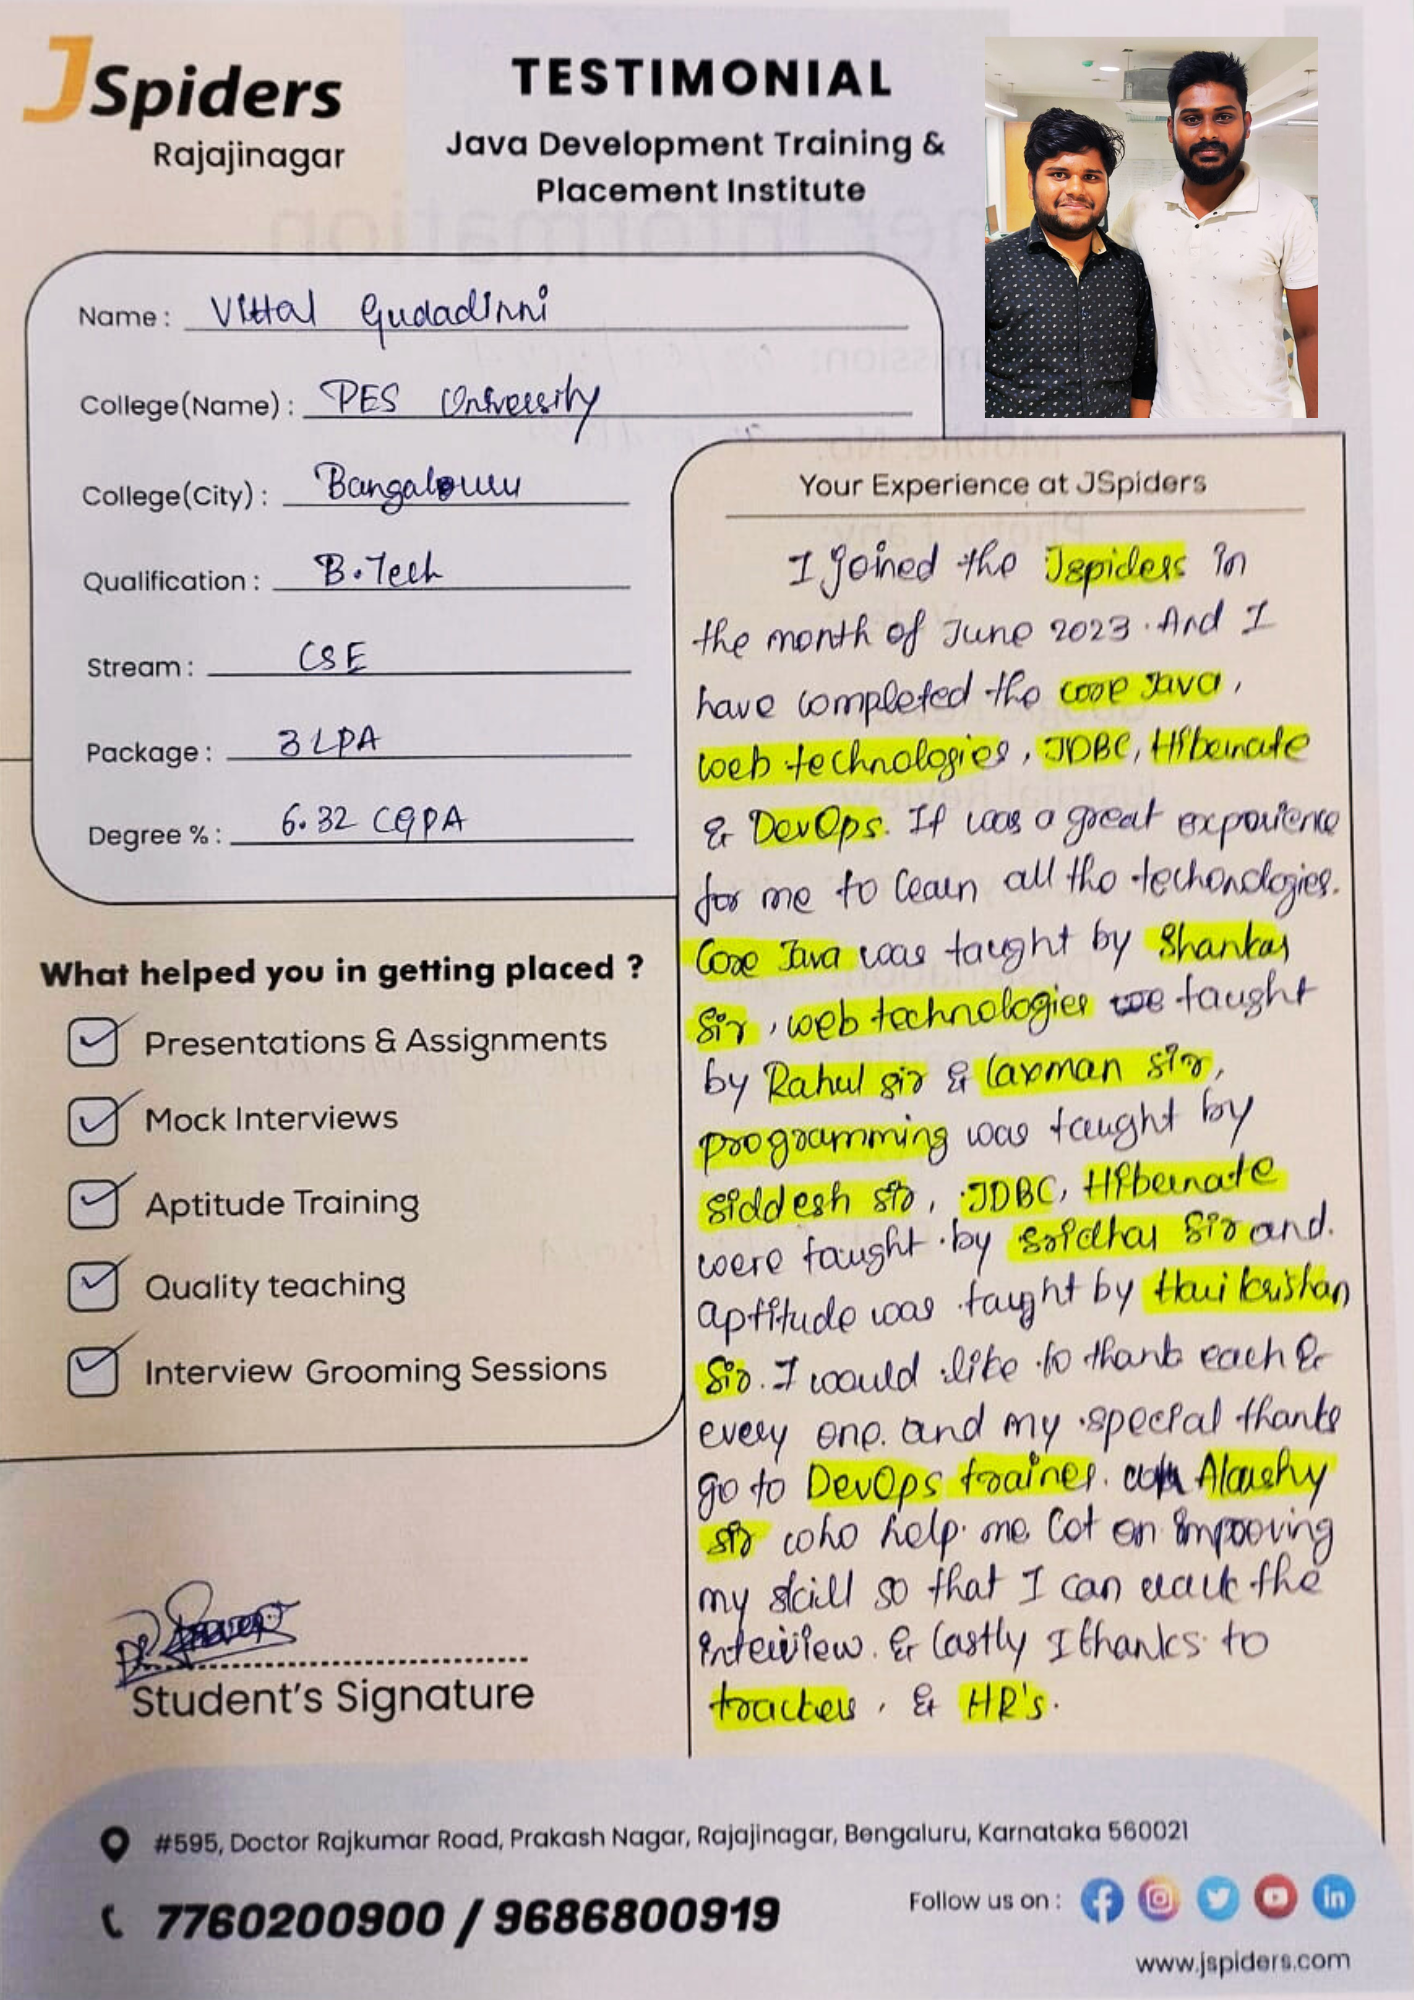 JSpiders
Rajajinagar
TESTIMONIAL
Java Development Training &
Placement Institute
Name : Vittal Gudadinni
College(Name) : PES University
College(City) :
Qualification : B.Tech
Stream : CSE
Package : 3 LPA
Degree % : 6.32 CGPA
What helped you in getting placed ?
Presentations & Assignments
Mock Interviews
Aptitude Training
Quality teaching
Interview Grooming Sessions
Student's Signature
Your Experience at JSpiders
I joined the Jspiders in
the month of June 2023. And I
have completed the core Java,
web technologies, JDBC, Hibernate
& DevOps. It was a great experience
for me to learn all the
Core Java was taught by Shankar
Sir, web technologies taught
by Rahul sir & Laxman sir,
programming was taught by
siddesh sir, JDBC, Hibernate
were taught by Sridhar Sir and
aptitude was taught by Hari krishan
Sir. I would like to thank each &
every one. and my special thanks
go to DevOps trainer.
sir who help me lot on improving
my skill so that I can crack the
interview. & lastly I thanks to
& HR's.
#595, Doctor Rajkumar Road, Prakash Nagar, Rajajinagar, Bengaluru, Karnataka 560021
7760200900 / 9686800919
Follow us on :
www.jspiders.com